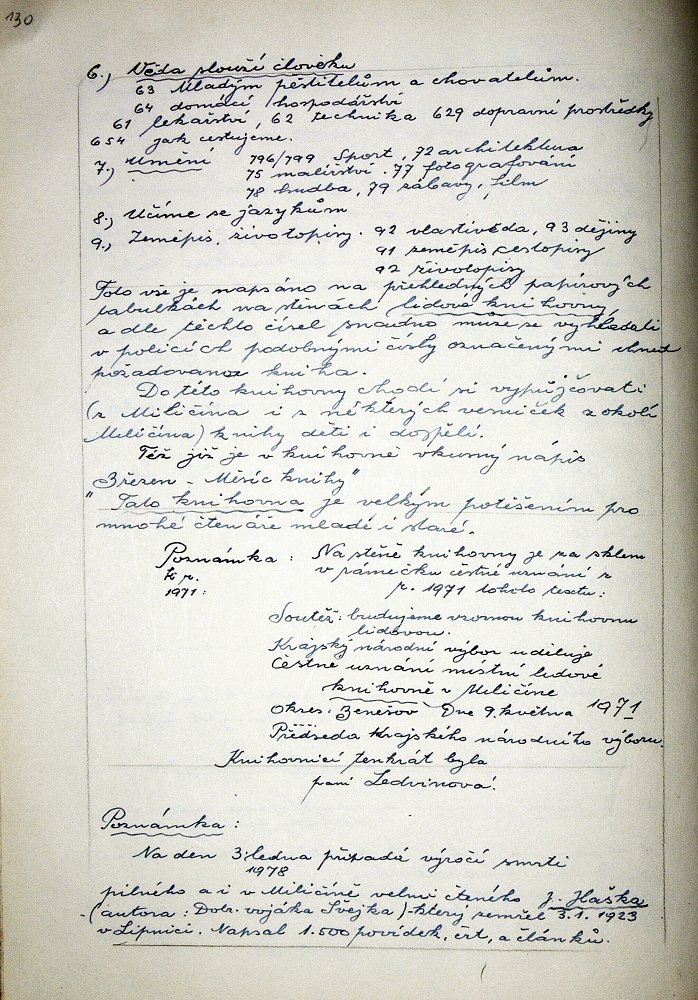 130
6.) Věda slouží člověku
63 Mladým pěstitelům a chovatelům.
64 domácí hospodářství
61 lékařství, 62 technika 629 dopravní prostředky
654 jak cestujeme.
7.) Umění 796/799 Sport, 72 architektura
75 malířství. 77 fotografování
78 hudba, 79 zábavy, film
8.) Učíme se jazykům
9.) Zeměpis, životopisy. 92 vlastivěda, 93 dějiny
91 zeměpis, cestopisy
92 životopisy
Toto vše je napsáno na přehledných papírových
tabulkách na stěnách lidové knihovny,
a dle těchto čísel snadno může se vyhledati
v policích podobnými čísly označenými ihned
požadovaná kniha.
Do této knihovny chodí si vypůjčovati
(z Miličína i z některých vesniček z okolí
Miličína) knihy děti i dospělí.
Též již je v knihovně vkusný nápis
"Březen - Měsíc knihy"
Tato knihovna je velkým potěšením pro
mnohé čtenáře mladé i staré.
Poznámka : Na stěně knihovny je za sklem
k r. v rámečku čestné uznání z
1971: r. 1971 tohoto textu:
Soutěž: budujeme vzornou knihovnu
lidovou.
Krajský národní výbor uděluje
Čestné uznání místní lidové
knihovně v Miličíně
Okres. Benešov Dne 9. května 1971
Předseda Krajského národního výboru.
Knihovnicí tenkrát byla
paní Ledvinová.
Poznámka :
Na den 3. ledna připadá výročí smrti
1978
pilného a i v Miličíně velmi čteného J. Haška
(autora: Dobr. vojáka Švejka) - který zemřel 3.1. 1923
v Lipnici. Napsal 1.500 povídek, črt, a článků.